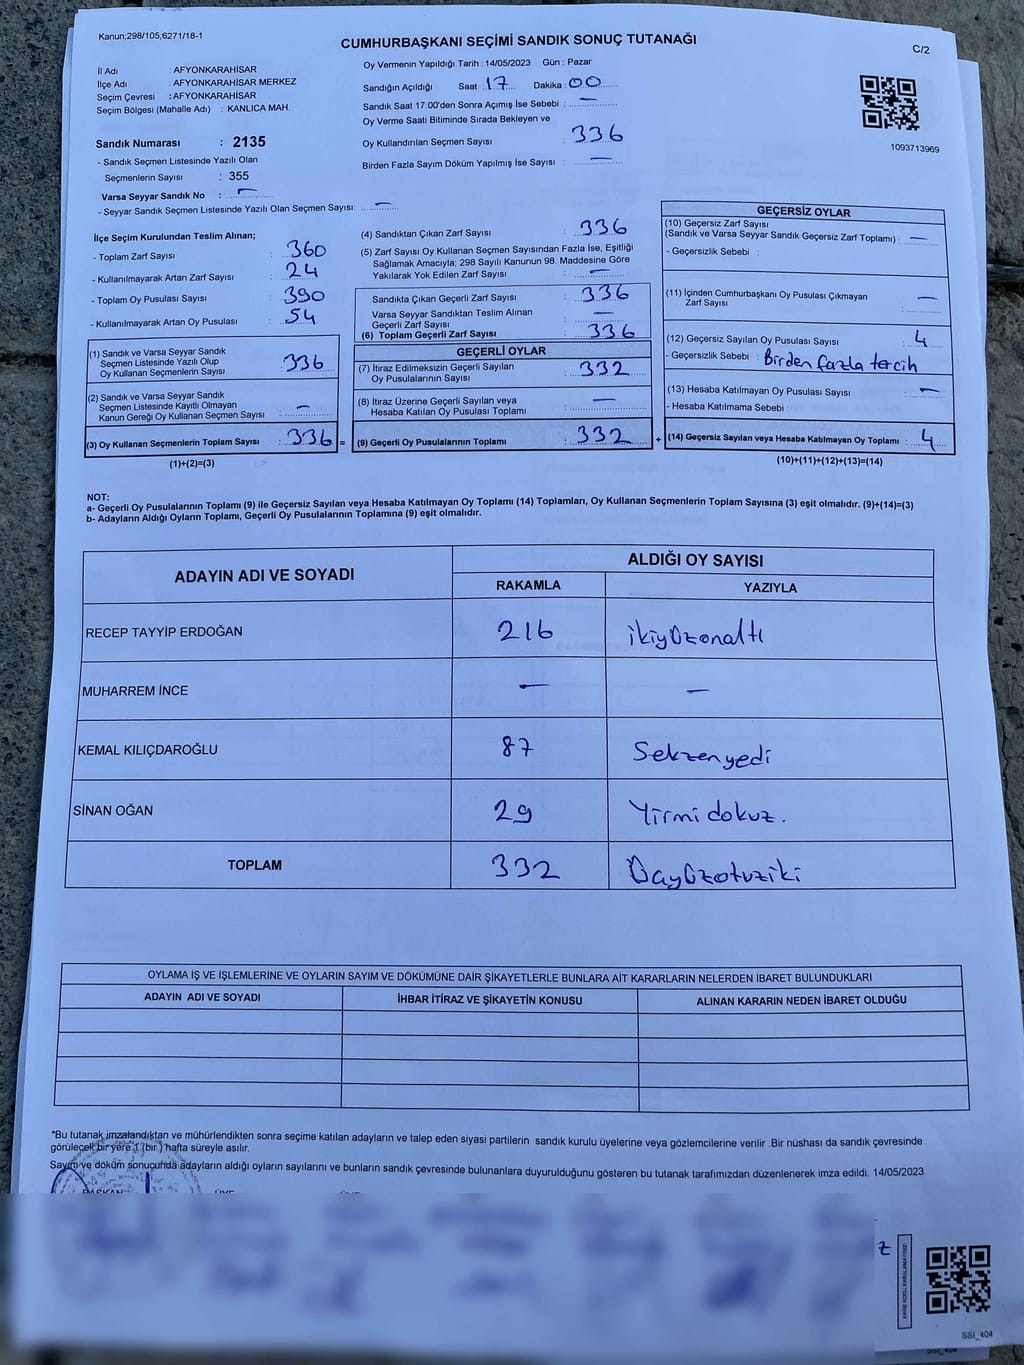 Kanun;298/105;6271/18-1
CUMHURBAŞKANI SEÇİMİ SANDIK SONUÇ TUTANAĞI
C/2
İl Adı : AFYONKARAHİSAR
İlçe Adı : AFYONKARAHİSAR MERKEZ
Seçim Çevresi : AFYONKARAHİSAR
Seçim Bölgesi (Mahalle Adı) : KANLICA MAH.
Sandık Numarası : 2135
- Sandık Seçmen Listesinde Yazılı Olan
Seçmenlerin Sayısı : 355
Varsa Seyyar Sandık No : —
- Seyyar Sandık Seçmen Listesinde Yazılı Olan Seçmen Sayısı: —
Oy Vermenin Yapıldığı Tarih : 14/05/2023 Gün : Pazar
Sandığın Açıldığı Saat : 17 Dakika : 00
Sandık Saat 17:00'den Sonra Açımış İse Sebebi : —
Oy Verme Saati Bitiminde Sırada Bekleyen ve
Oy Kullandırılan Seçmen Sayısı : 336
Birden Fazla Sayım Döküm Yapılmış İse Sayısı : —
1093713969
İlçe Seçim Kurulundan Teslim Alınan;
- Toplam Zarf Sayısı : 360
- Kullanılmayarak Artan Zarf Sayısı : 24
- Toplam Oy Pusulası Sayısı : 390
- Kullanılmayarak Artan Oy Pusulası : 54
(1) Sandık ve Varsa Seyyar Sandık
Seçmen Listesinde Yazılı Olup
Oy Kullanan Seçmenlerin Sayısı : 336
(2) Sandık ve Varsa Seyyar Sandık
Seçmen Listesinde Kayıtlı Olmayan
Kanun Gereği Oy Kullanan Seçmen Sayısı : —
(3) Oy Kullanan Seçmenlerin Toplam Sayısı : 336 =
(1)+(2)=(3)
(4) Sandıktan Çıkan Zarf Sayısı : 336
(5) Zarf Sayısı Oy Kullanan Seçmen Sayısından Fazla İse, Eşitliği
Sağlamak Amacıyla; 298 Sayılı Kanunun 98. Maddesine Göre
Yakılarak Yok Edilen Zarf Sayısı : —
Sandıkta Çıkan Geçerli Zarf Sayısı : 336
Varsa Seyyar Sandıktan Teslim Alınan
Geçerli Zarf Sayısı : —
(6) Toplam Geçerli Zarf Sayısı : 336
GEÇERLİ OYLAR
(7) İtiraz Edilmeksizin Geçerli Sayılan
Oy Pusulalarının Sayısı : 332
(8) İtiraz Üzerine Geçerli Sayılan veya
Hesaba Katılan Oy Pusulası Toplamı : —
(9) Geçerli Oy Pusulalarının Toplamı : 332 +
GEÇERSİZ OYLAR
(10) Geçersiz Zarf Sayısı
(Sandık ve Varsa Seyyar Sandık Geçersiz Zarf Toplamı) : —
- Geçersizlik Sebebi :
(11) İçinden Cumhurbaşkanı Oy Pusulası Çıkmayan
Zarf Sayısı : —
(12) Geçersiz Sayılan Oy Pusulası Sayısı : 4
- Geçersizlik Sebebi : Birden fazla tercih
(13) Hesaba Katılmayan Oy Pusulası Sayısı : —
- Hesaba Katılmama Sebebi :
(14) Geçersiz Sayılan veya Hesaba Katılmayan Oy Toplamı : 4
(10)+(11)+(12)+(13)=(14)
NOT:
a- Geçerli Oy Pusulalarının Toplamı (9) ile Geçersiz Sayılan veya Hesaba Katılmayan Oy Toplamı (14) Toplamları, Oy Kullanan Seçmenlerin Toplam Sayısına (3) eşit olmalıdır. (9)+(14)=(3)
b- Adayların Aldığı Oyların Toplamı, Geçerli Oy Pusulalarının Toplamına (9) eşit olmalıdır.
ADAYIN ADI VE SOYADI
ALDIĞI OY SAYISI
RAKAMLA YAZIYLA
RECEP TAYYİP ERDOĞAN 216 ikiyüzonaltı
MUHARREM İNCE — —
KEMAL KILIÇDAROĞLU 87 Seksenyedi
SİNAN OĞAN 29 Yirmidokuz.
TOPLAM 332 Üçyüzotuziki
OYLAMA İŞ VE İŞLEMLERİNE VE OYLARIN SAYIM VE DÖKÜMÜNE DAİR ŞİKAYETLERLE BUNLARA AİT KARARLARIN NELERDEN İBARET BULUNDUKLARI
ADAYIN ADI VE SOYADI İHBAR İTİRAZ VE ŞİKAYETİN KONUSU ALINAN KARARIN NEDEN İBARET OLDUĞU
*Bu tutanak imzalandıktan ve mühürlendikten sonra seçime katılan adayların ve talep eden siyasi partilerin sandık kurulu üyelerine veya gözlemcilerine verilir .Bir nüshası da sandık çevresinde
görülecek bir yere 1 (bir ) hafta süreyle asılır.
Sayım ve döküm sonucunda adayların aldığı oyların sayılarını ve bunların sandık çevresinde bulunanlara duyurulduğunu gösteren bu tutanak tarafımızdan düzenlenerek imza edildi. 14/05/2023
BAŞKAN ÜYE ÜYE
KARE KODU KARALAMAYINIZ!
SSI_404
SSI_404